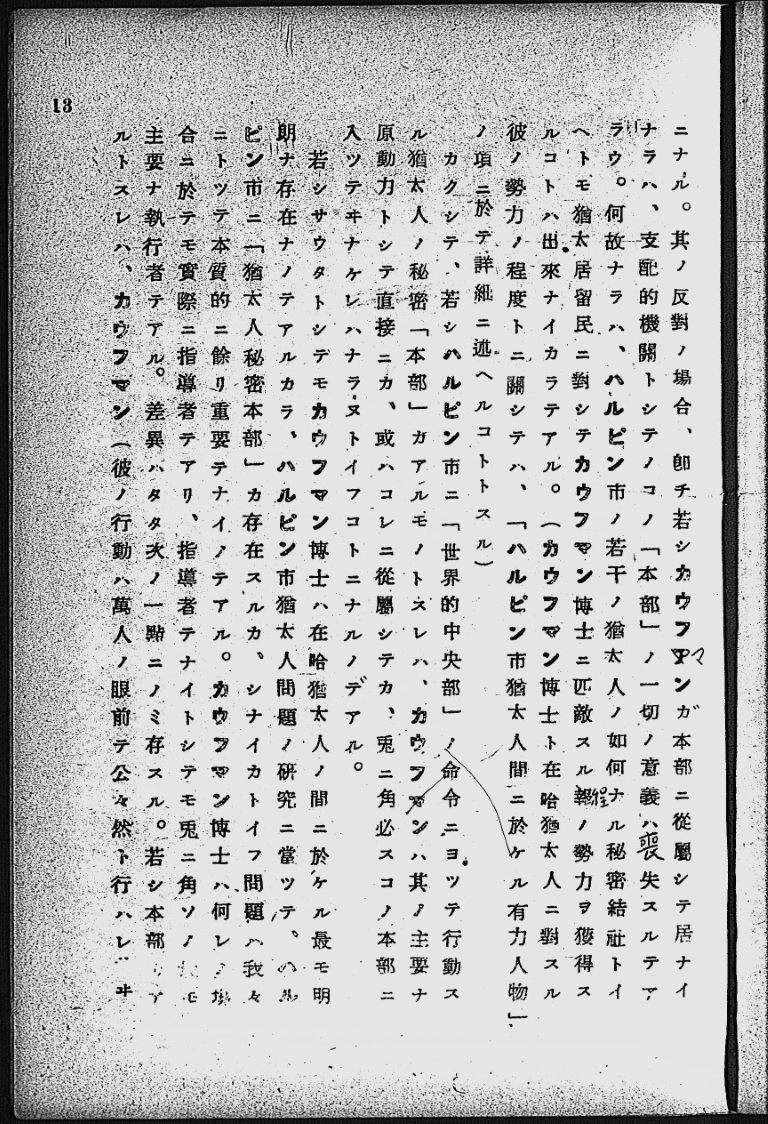 13
ニナル。其ノ反對ノ場合、卽チ若シカウフマンガ本部ニ從屬シテ居ナイ
ナラハ、支配的機關トシテノコノ「本部」ノ一切ノ意義ハ喪失スルテア
ラウ。何故ナラハ、ハルピン市ノ若干ノ猶太人ノ如何ナル秘密結社トイ
ヘトモ猶太居留民ニ對シテカウフマン博士ニ匹敵スル程ノ勢力ヲ獲得ス
ルコトハ出來ナイカラテアル。(カウフマン博士ト在哈猶太人ニ對スル
彼ノ勢力ノ程度トニ關シテハ、「ハルピン市猶太人間ニ於ケル有力人物」
ノ項ニ於テ詳細ニ述ヘルコトトスル)
カクシテ、若シハルピン市ニ「世界的中央部」ノ命令ニヨツテ行動ス
ル猶太人ノ秘密「本部」カアルモノトスレハ、カウフマンハ其ノ主要ナ
原動力トシテ直接ニカ、或ハコレニ從屬シテカ、兎ニ角必スコノ本部ニ
入ツテヰナケレハナラヌトイフコトニナルノデアル。
若シサウタトシデモカウフマン博士ハ在哈猶太人ノ間ニ於ケル最モ明
朗ナ存在ナノテアルカラ、ハルピン市猶太人問題ノ研究ニ當ツテ、ハル
ピン市ニ「猶太人秘密本部」カ存在スルカ、シナイカトイフ問題ハ我々
ニトツテ本質的ニ餘リ重要テナイノテアル。カウフマン博士ハ何レノ場
合ニ於テモ實際ニ指導者テアリ、指導者テナイトシテモ兎ニ角ソノモ
主要ナ執行者テアル。差異ハタタ次ノ一點ニノミ存スル。若シ本部カア
ルトスレハ、カウフマン(彼ノ行動ハ萬人ノ眼前テ公々然ト行ハレヰ
マ